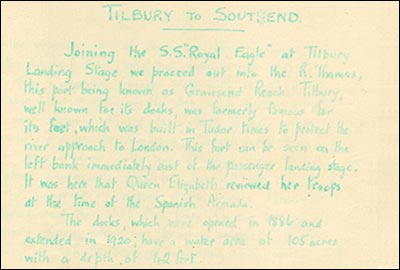 TILBURY TO SOUTHEND.
Joining the S.S. "Royal Eagle" at Tilbury
Landing Stage we proceed out into the R. Thames,
this part being known as Gravesend Reach. Tilbury,
well known for its docks was formerly famous for
its fort, which was built in Tudor times to protect the
river approach to London. This fort can be seen on the
left bank immediately east of the passenger landing stage.
It was here that Queen Elizabeth reviewed her troops
at the time of the Spanish Armada.
The docks, which were opened in 1886 and
extended in 1920; have a water area of 105 acres
with a depth of 42 feet.